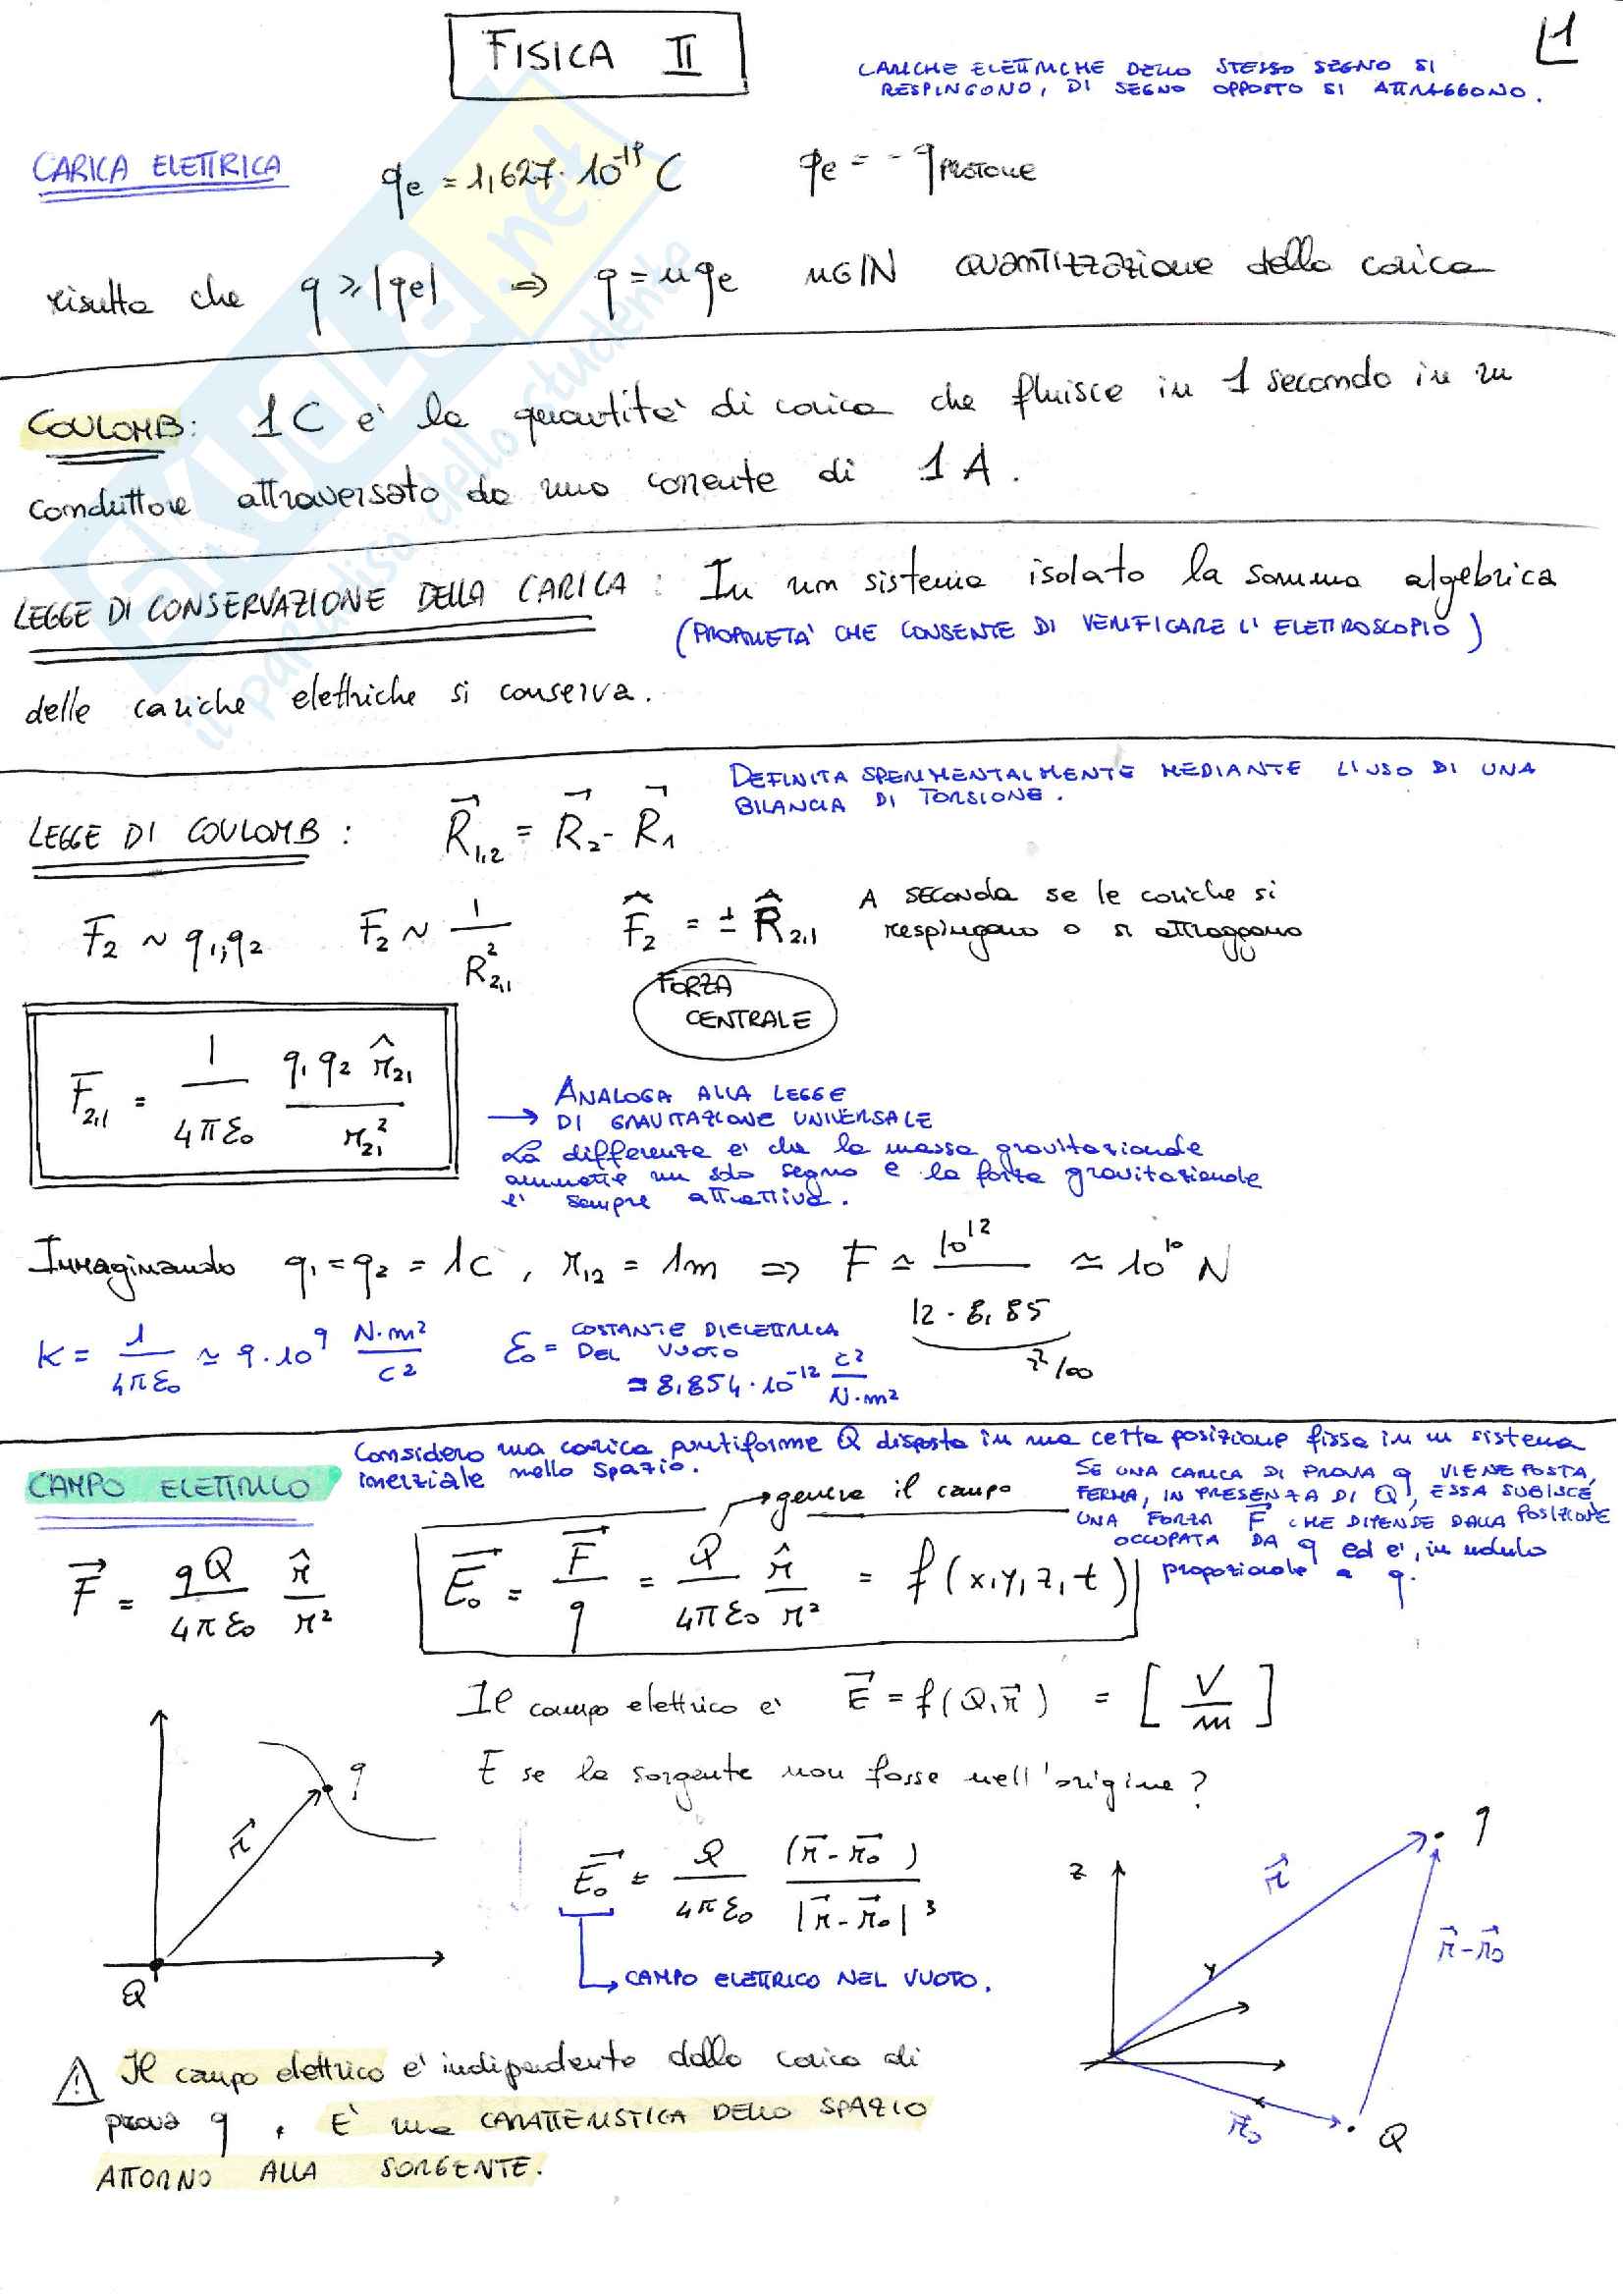 FISICA II
1
CARICHE ELETTRICHE DELLO STESSO SEGNO SI
RESPINGONO, DI SEGNO OPPOSTO SI ATTRAGGONO.
CARICA ELETTRICA qe = 1,627·10⁻¹⁹ C qe = - q PROTONE
risulta che q ⩾ |qe| ⇒ q = n qe n∈ℕ QUANTIZZAZIONE della carica
COULOMB: 1C è la quantità di carica che fluisce in 1 secondo in un
conduttore attraversato da una corrente di 1 A.
LEGGE DI CONSERVAZIONE DELLA CARICA : In un sistema isolato la somma algebrica
(PROPRIETA' CHE CONSENTE DI VERIFICARE L'ELETTROSCOPIO)
delle cariche elettriche si conserva.
DEFINITA SPERIMENTALMENTE MEDIANTE L'USO DI UNA
BILANCIA DI TORSIONE.
LEGGE DI COULOMB : R⃗₁,₂ = R⃗₂ - R⃗₁
F₂ ~ q₁;q₂ F₂ ~ 1/R²₂,₁ F̂₂ = ± R̂₂,₁ A SECONDA se le cariche si
respingono o si attraggono
FORZA
CENTRALE
F₂,₁ = 1/4πε₀ q₁q₂ r̂₂₁/r₂₁²
→ ANALOGA ALLA LEGGE
DI GRAVITAZIONE UNIVERSALE
La differenza è che la massa gravitazionale
ammette un solo segno e la forza gravitazionale
è sempre attrattiva.
Immaginando q₁ = q₂ = 1C , r₁₂ = 1m ⇒ F ≃ 10¹²/12·8,85 ≃ 10¹⁰ N
≃/100
K = 1/4πε₀ ≃ 9·10⁹ N·m²/C² ε₀ = COSTANTE DIELETTRICA
DEL VUOTO
= 8,854·10⁻¹² C²/N·m²
Considero una carica puntiforme Q disposta in una certa posizione fissa in un sistema
inerziale nello spazio.
CAMPO ELETTRICO
SE UNA CARICA DI PROVA q VIENE POSTA,
FERMA, IN PRESENZA DI Q, ESSA SUBISCE
UNA FORZA F⃗ CHE DIPENDE DALLA POSIZIONE
OCCUPATA DA q ed è, in modulo
proporzionale a q.
→ genera il campo
F⃗ = qQ/4πε₀ r̂/r² E⃗₀ = F⃗/q = Q/4πε₀ r̂/r² = f(x,y,z,t)
Il campo elettrico è E⃗ = f(Q,r⃗) = [V/m]
E se la sorgente non fosse nell'origine?
q
r⃗
Q
E⃗₀ = Q/4πε₀ (r⃗-r⃗₀)/|r⃗-r⃗₀|³
CAMPO ELETTRICO NEL VUOTO.
z
y
q
r⃗
r⃗-r⃗₀
r⃗₀
Q
! Il campo elettrico è indipendente dalla carica di
prova q . E' una CARATTERISTICA DELLO SPAZIO
ATTORNO ALLA SORGENTE.
SKUOLA.net
il paradiso dello studente